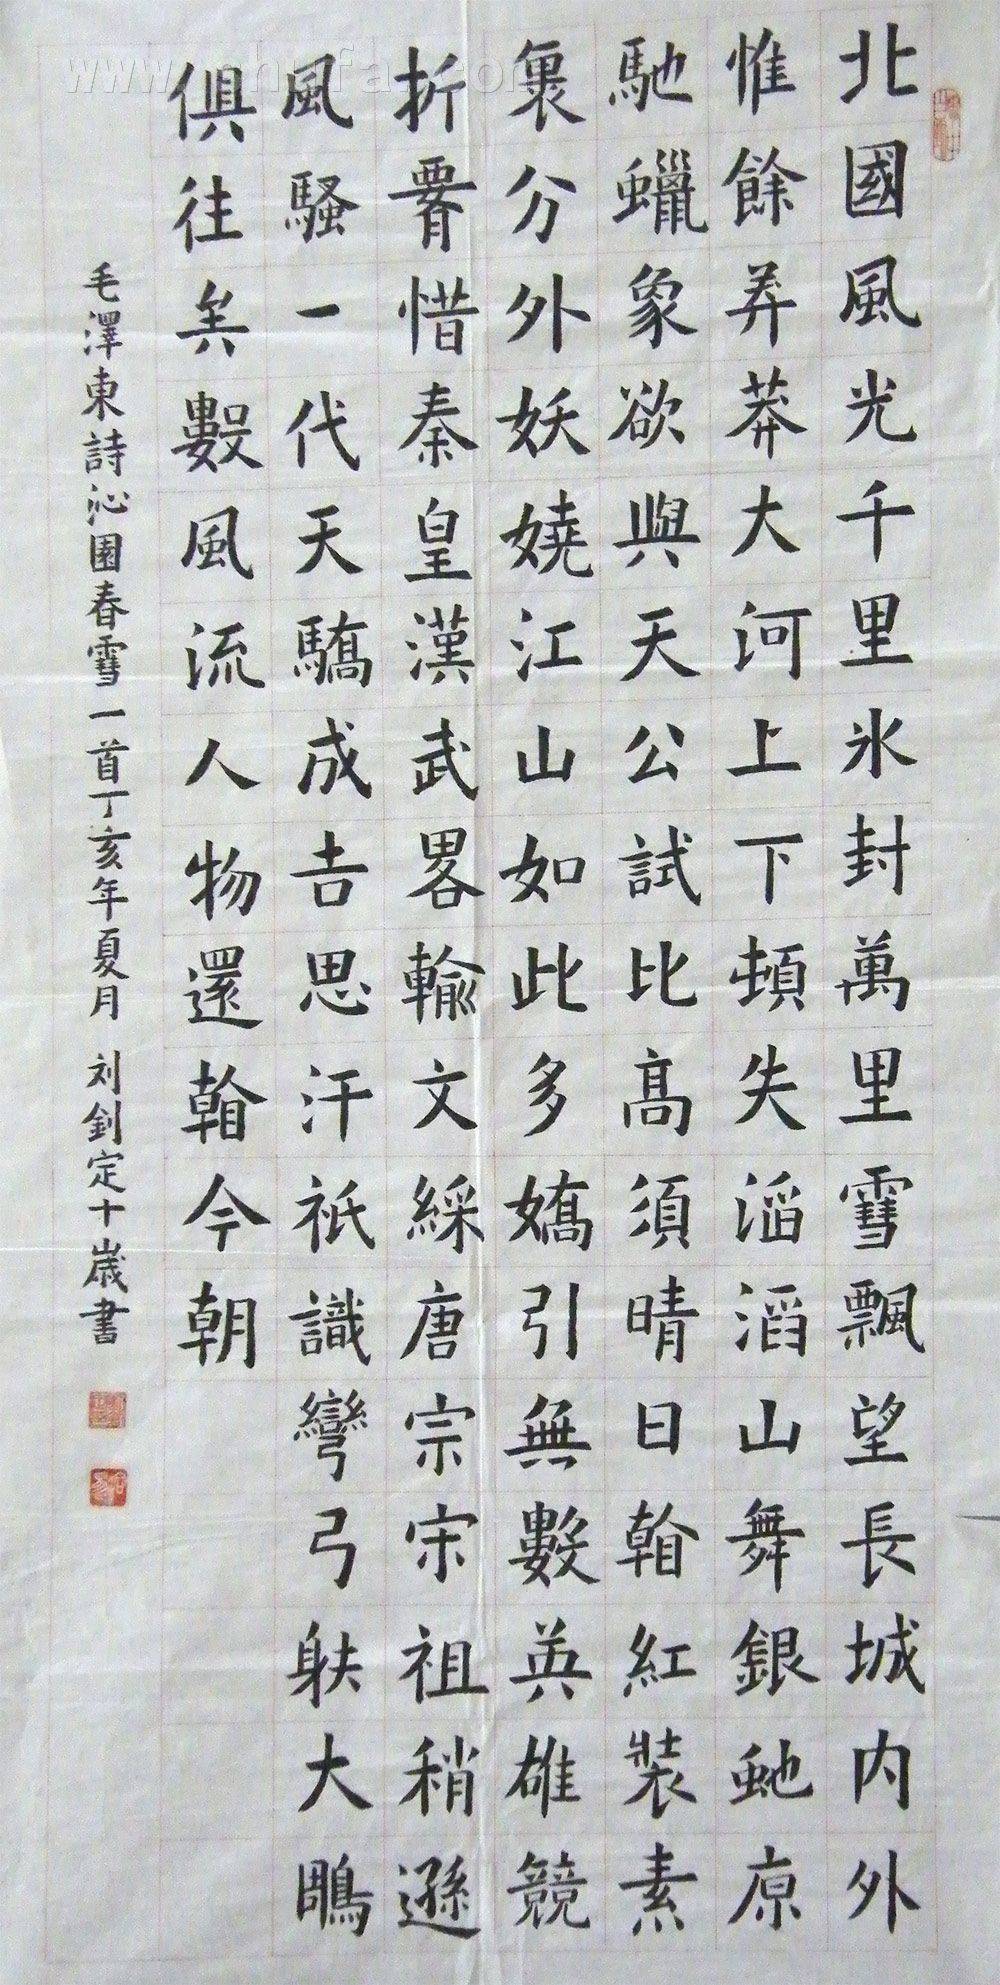 北國風光千里氷封萬里雪飄望長城内外
惟餘莽莽大河上下頓失滔滔山舞銀虵原
馳蠟象欲與天公試比髙須晴日看紅裝素
裹分外妖嬈江山如此多嬌引無數英雄競
折腰惜秦皇漢武畧輸文綵唐宗宋祖稍遜
風騷一代天驕成吉思汗祇識彎弓射大鵰
俱往矣數風流人物還看今朝
毛澤東詩沁園春雪一首丁亥年夏月 刘釗定十歲書